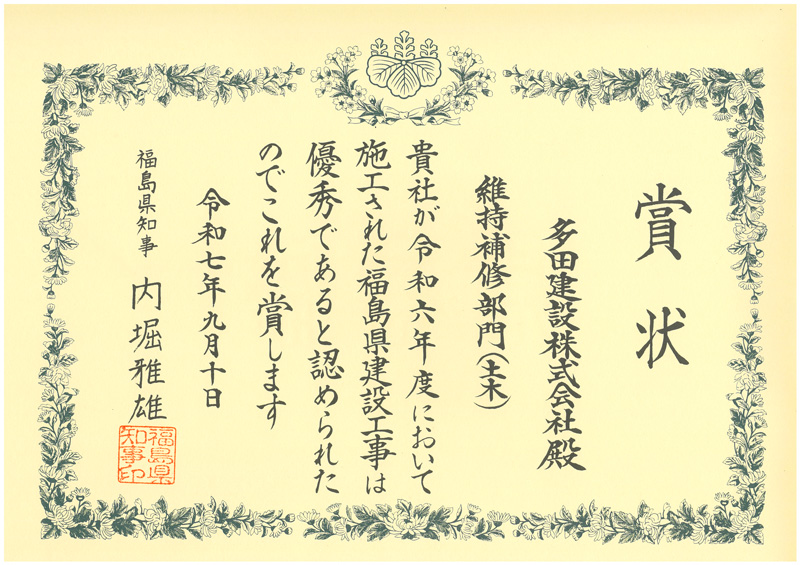 賞状
多田建設株式会社殿
維持補修部門（土木）
貴社が令和六年度において
施工された福島県建設工事は
優秀であると認められた
のでこれを賞します
令和七年九月十日
福島県知事 内堀雅雄
福島県
知事印